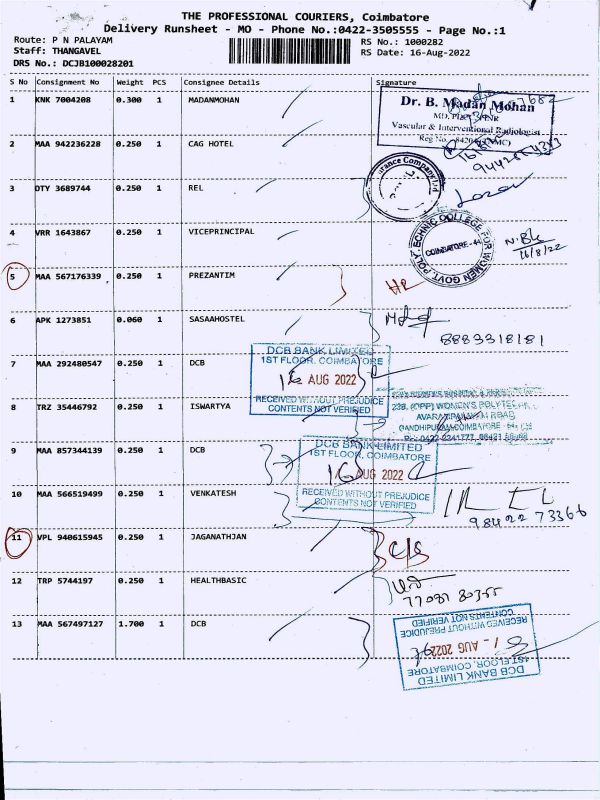 THE PROFESSIONAL COURIERS, Coimbatore
Delivery Runsheet - MO - Phone No.:0422-3505555 - Page No.:1
Route: P N PALAYAM
Staff: THANGAVEL
DRS No.: DCJB100028201
RS No.: 1000282
RS Date: 16-Aug-2022
S No Consignment No Weight PCS Consignee Details Signature
1 KNK 7004208 0.300 1 MADANMOHAN
Dr. B. Madan Mohan
Vascular & Interventional Radiologist
2 MAA 942236228 0.250 1 CAG HOTEL
3 DTY 3689744 0.250 1 REL
4 VRR 1643867 0.250 1 VICEPRINCIPAL
COIMBATORE - 44
16/8/22
5 MAA 567176339 0.250 1 PREZANTIM
6 APK 1273851 0.060 1 SASAAHOSTEL
8883318181
7 MAA 292480547 0.250 1 DCB
DCB BANK LIMITED
1ST FLOOR, COIMBATORE
16 AUG 2022
RECEIVED WITHOUT PREJUDICE
CONTENTS NOT VERIFIED
8 TRZ 35446792 0.250 1 ISWARTYA
9 MAA 857344139 0.250 1 DCB
DCB BANK LIMITED
1ST FLOOR, COIMBATORE
16 AUG 2022
RECEIVED WITHOUT PREJUDICE
CONTENTS NOT VERIFIED
10 MAA 566519499 0.250 1 VENKATESH
98422 73366
11 VPL 940615945 0.250 1 JAGANATHJAN
12 TRP 5744197 0.250 1 HEALTHBASIC
13 MAA 567497127 1.700 1 DCB
DCB BANK LIMITED
1ST FLOOR, COIMBATORE
AUG 2022
RECEIVED WITHOUT PREJUDICE
CONTENTS NOT VERIFIED